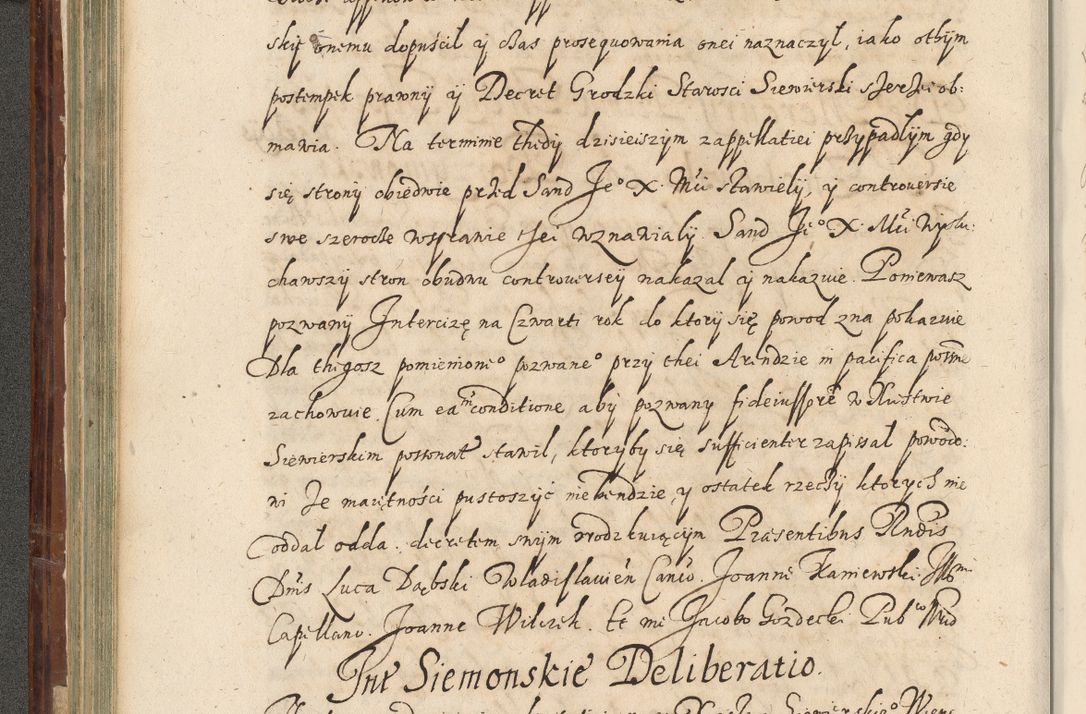 skię onemu dopuścił y czas prosequowania onei naznaczył, iako othym
postempek prawny y Decret Grodzki Starosci Siewierski szerzei ob:
mawia. Na terminie thedy dzisieiszym zappellatiei przypadłym gdy
się strony obiedwie przed Sand Jeº X. Mći stawieły, y controuersie
swe szeroce wsprawie tei wznawiały. Sand Jeº X. Mći wysłu:
chawszy stron obudwu controuersey nakazał y nakazuie. Poniewasz
pozwany Intercizę na Czwarti rok do ktory się powod zna pokazuie
Dla thegosz pomienioneº pozwaneº przy thei Arendzie in pacifica possne
zachowuie. Cum ea conditione aby pozwany fideiussorē w Xięstwie
Siewierskim possonat stawił, ktoryby się sufficienter zapisał powodo:
wi Ze maiętności pustoszyć niebendzie, y ostatek rzeczy ktorych nie
oddał odda. decretem swym rrodzkuiącym Præsentibus Rndis
Dnis Luca Dąbski Wladislavień Canco. Joanne Kaniewski Illm
Capellano. Joanne Wilczek. Et me Jacobo Gozdecki Pubco
Int Siemonskie Deliberatio.